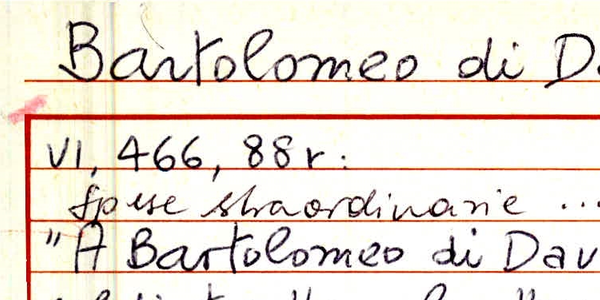 Bartolomeo di D
VI, 466, 88r.
spese straordinarie ...
"A Bartolomeo di Dav